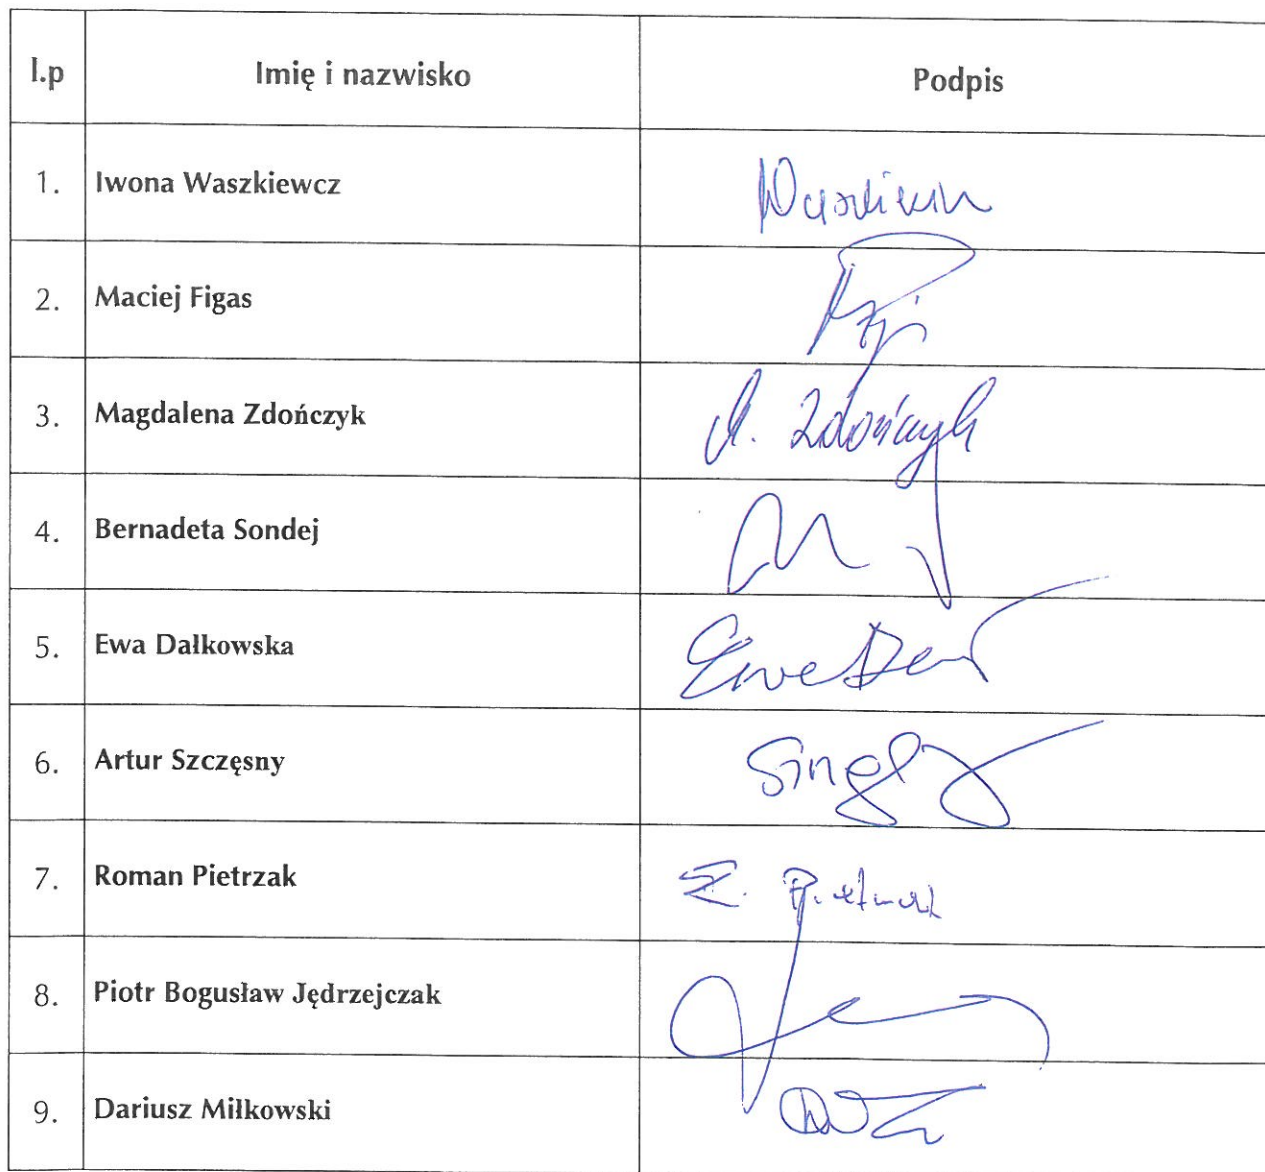 l.p Imię i nazwisko Podpis
1. Iwona Waszkiewcz
2. Maciej Figas
3. Magdalena Zdończyk M. Zdończyk
4. Bernadeta Sondej
5. Ewa Dałkowska
6. Artur Szczęsny
7. Roman Pietrzak R. Pietrzak
8. Piotr Bogusław Jędrzejczak
9. Dariusz Miłkowski